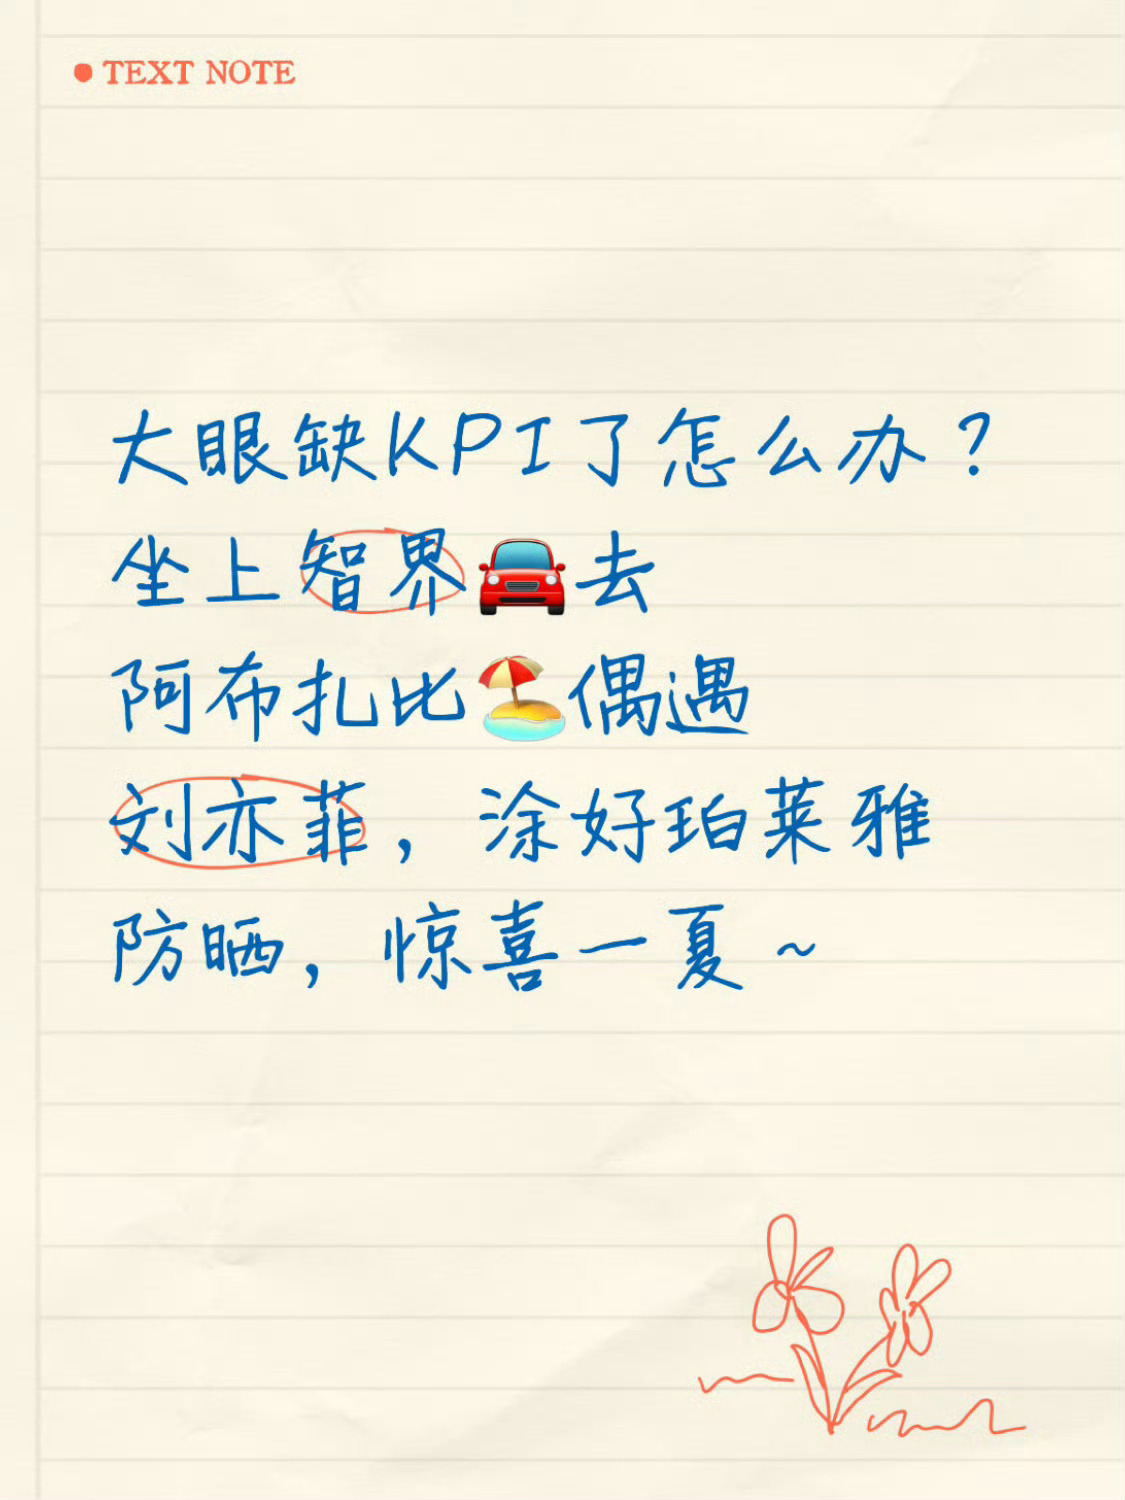 TEXT NOTE
大眼缺KPI了怎么办？
坐上智界🚘去
阿布扎比🏖偶遇
刘亦菲，涂好珀莱雅
防晒，惊喜一夏～